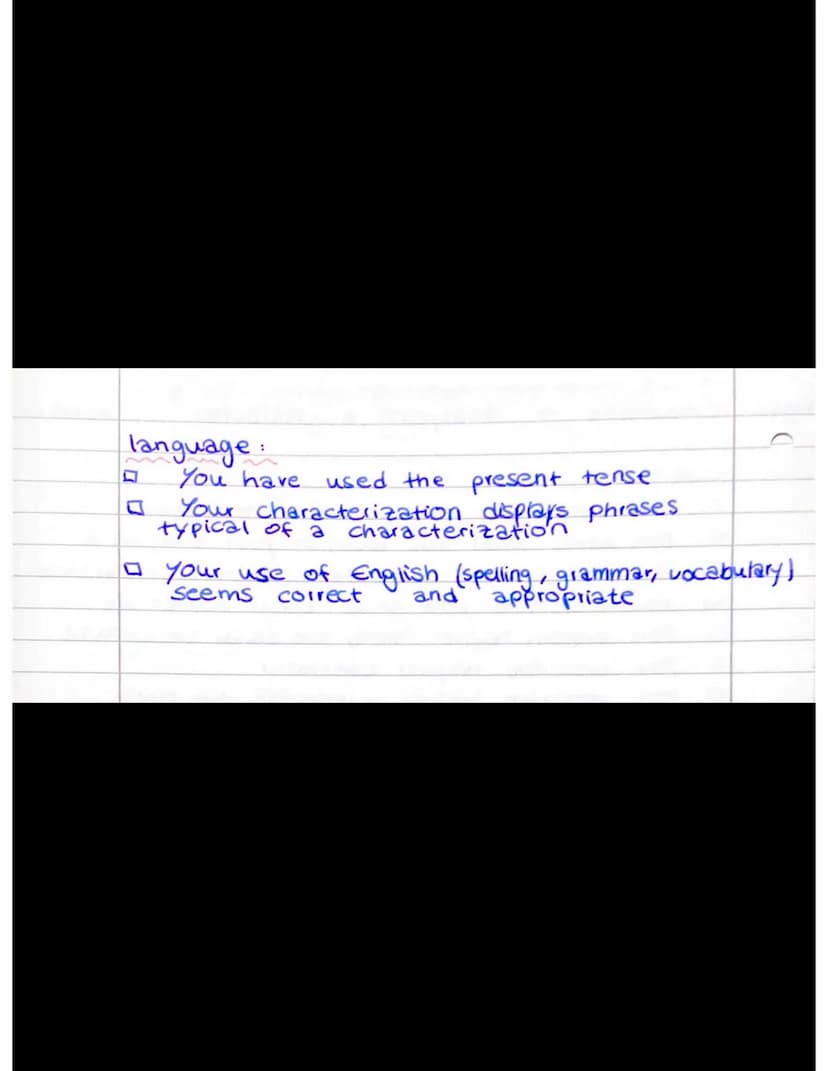 language :
□ You have used the present tense
□ Your characterization displays phrases
typical of a characterization
□ your use of English (spelling, grammar, vocabulary)
seems correct and appropriate